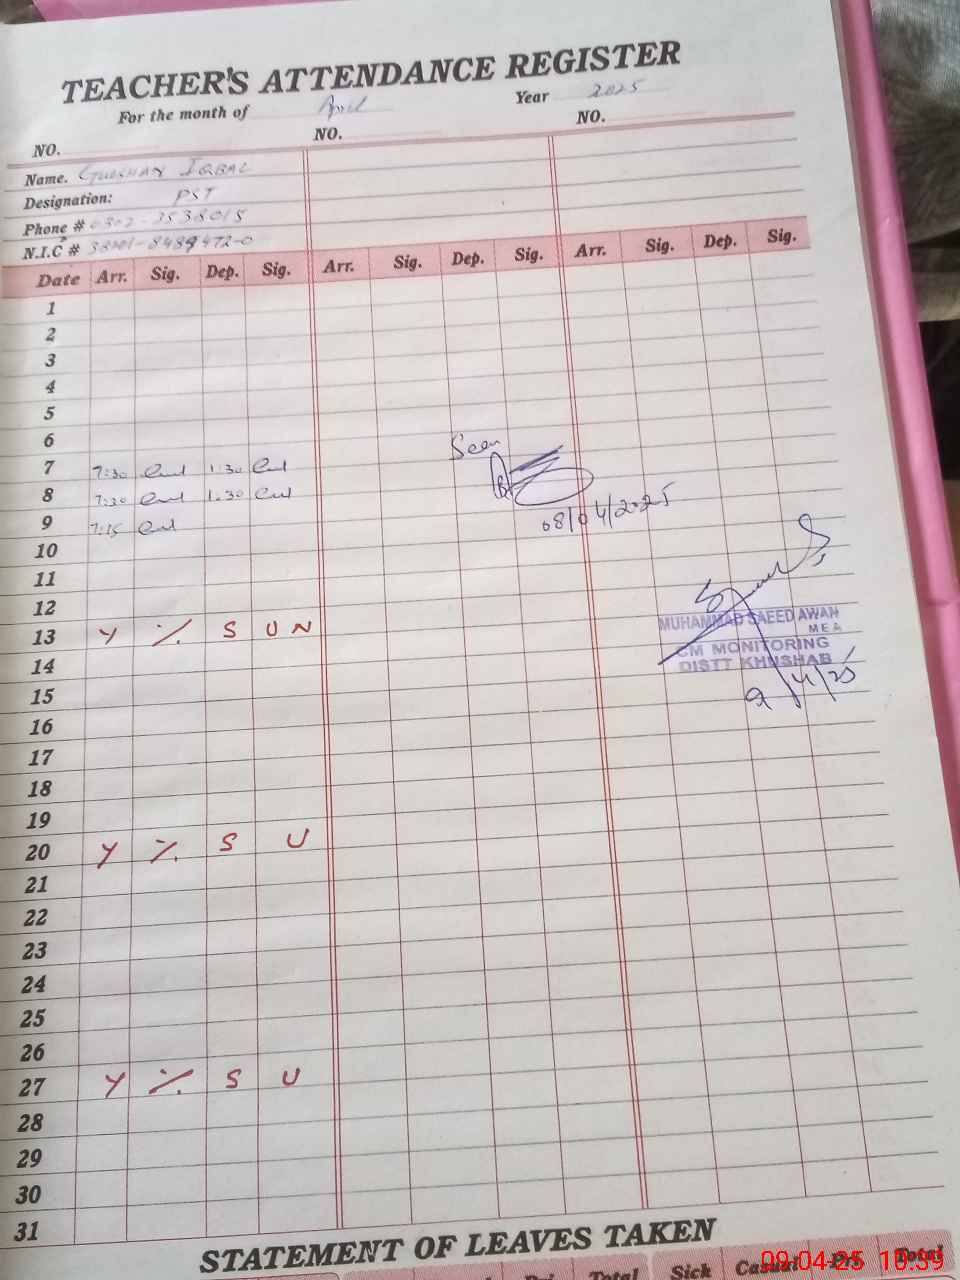 TEACHER'S ATTENDANCE REGISTER
For the month of April Year 2025
NO. NO. NO.
Name. GULSHAN IQBAL
Designation: PST
Phone # 0302-7538015
N.I.C #
Date Arr. Sig. Dep. Sig. Arr. Sig. Dep. Sig. Arr. Sig. Dep. Sig.
1
2
3
4
5
6
Seen
7 7:30 1:30
8 7:30 1:30
08/04/2025
9 7:15
10
11
12
MUHAMMAD SAEED AWAN
MEA
13 Y ٪ S U N
CM MONITORING
14
DISTT KHUSHAB
15
9/4/25
16
17
18
19
20 Y ٪ S U
21
22
23
24
25
26
27 Y ٪ S U
28
29
30
31
STATEMENT OF LEAVES TAKEN
Total Sick Casual Prv Total
09-04-25 10:39